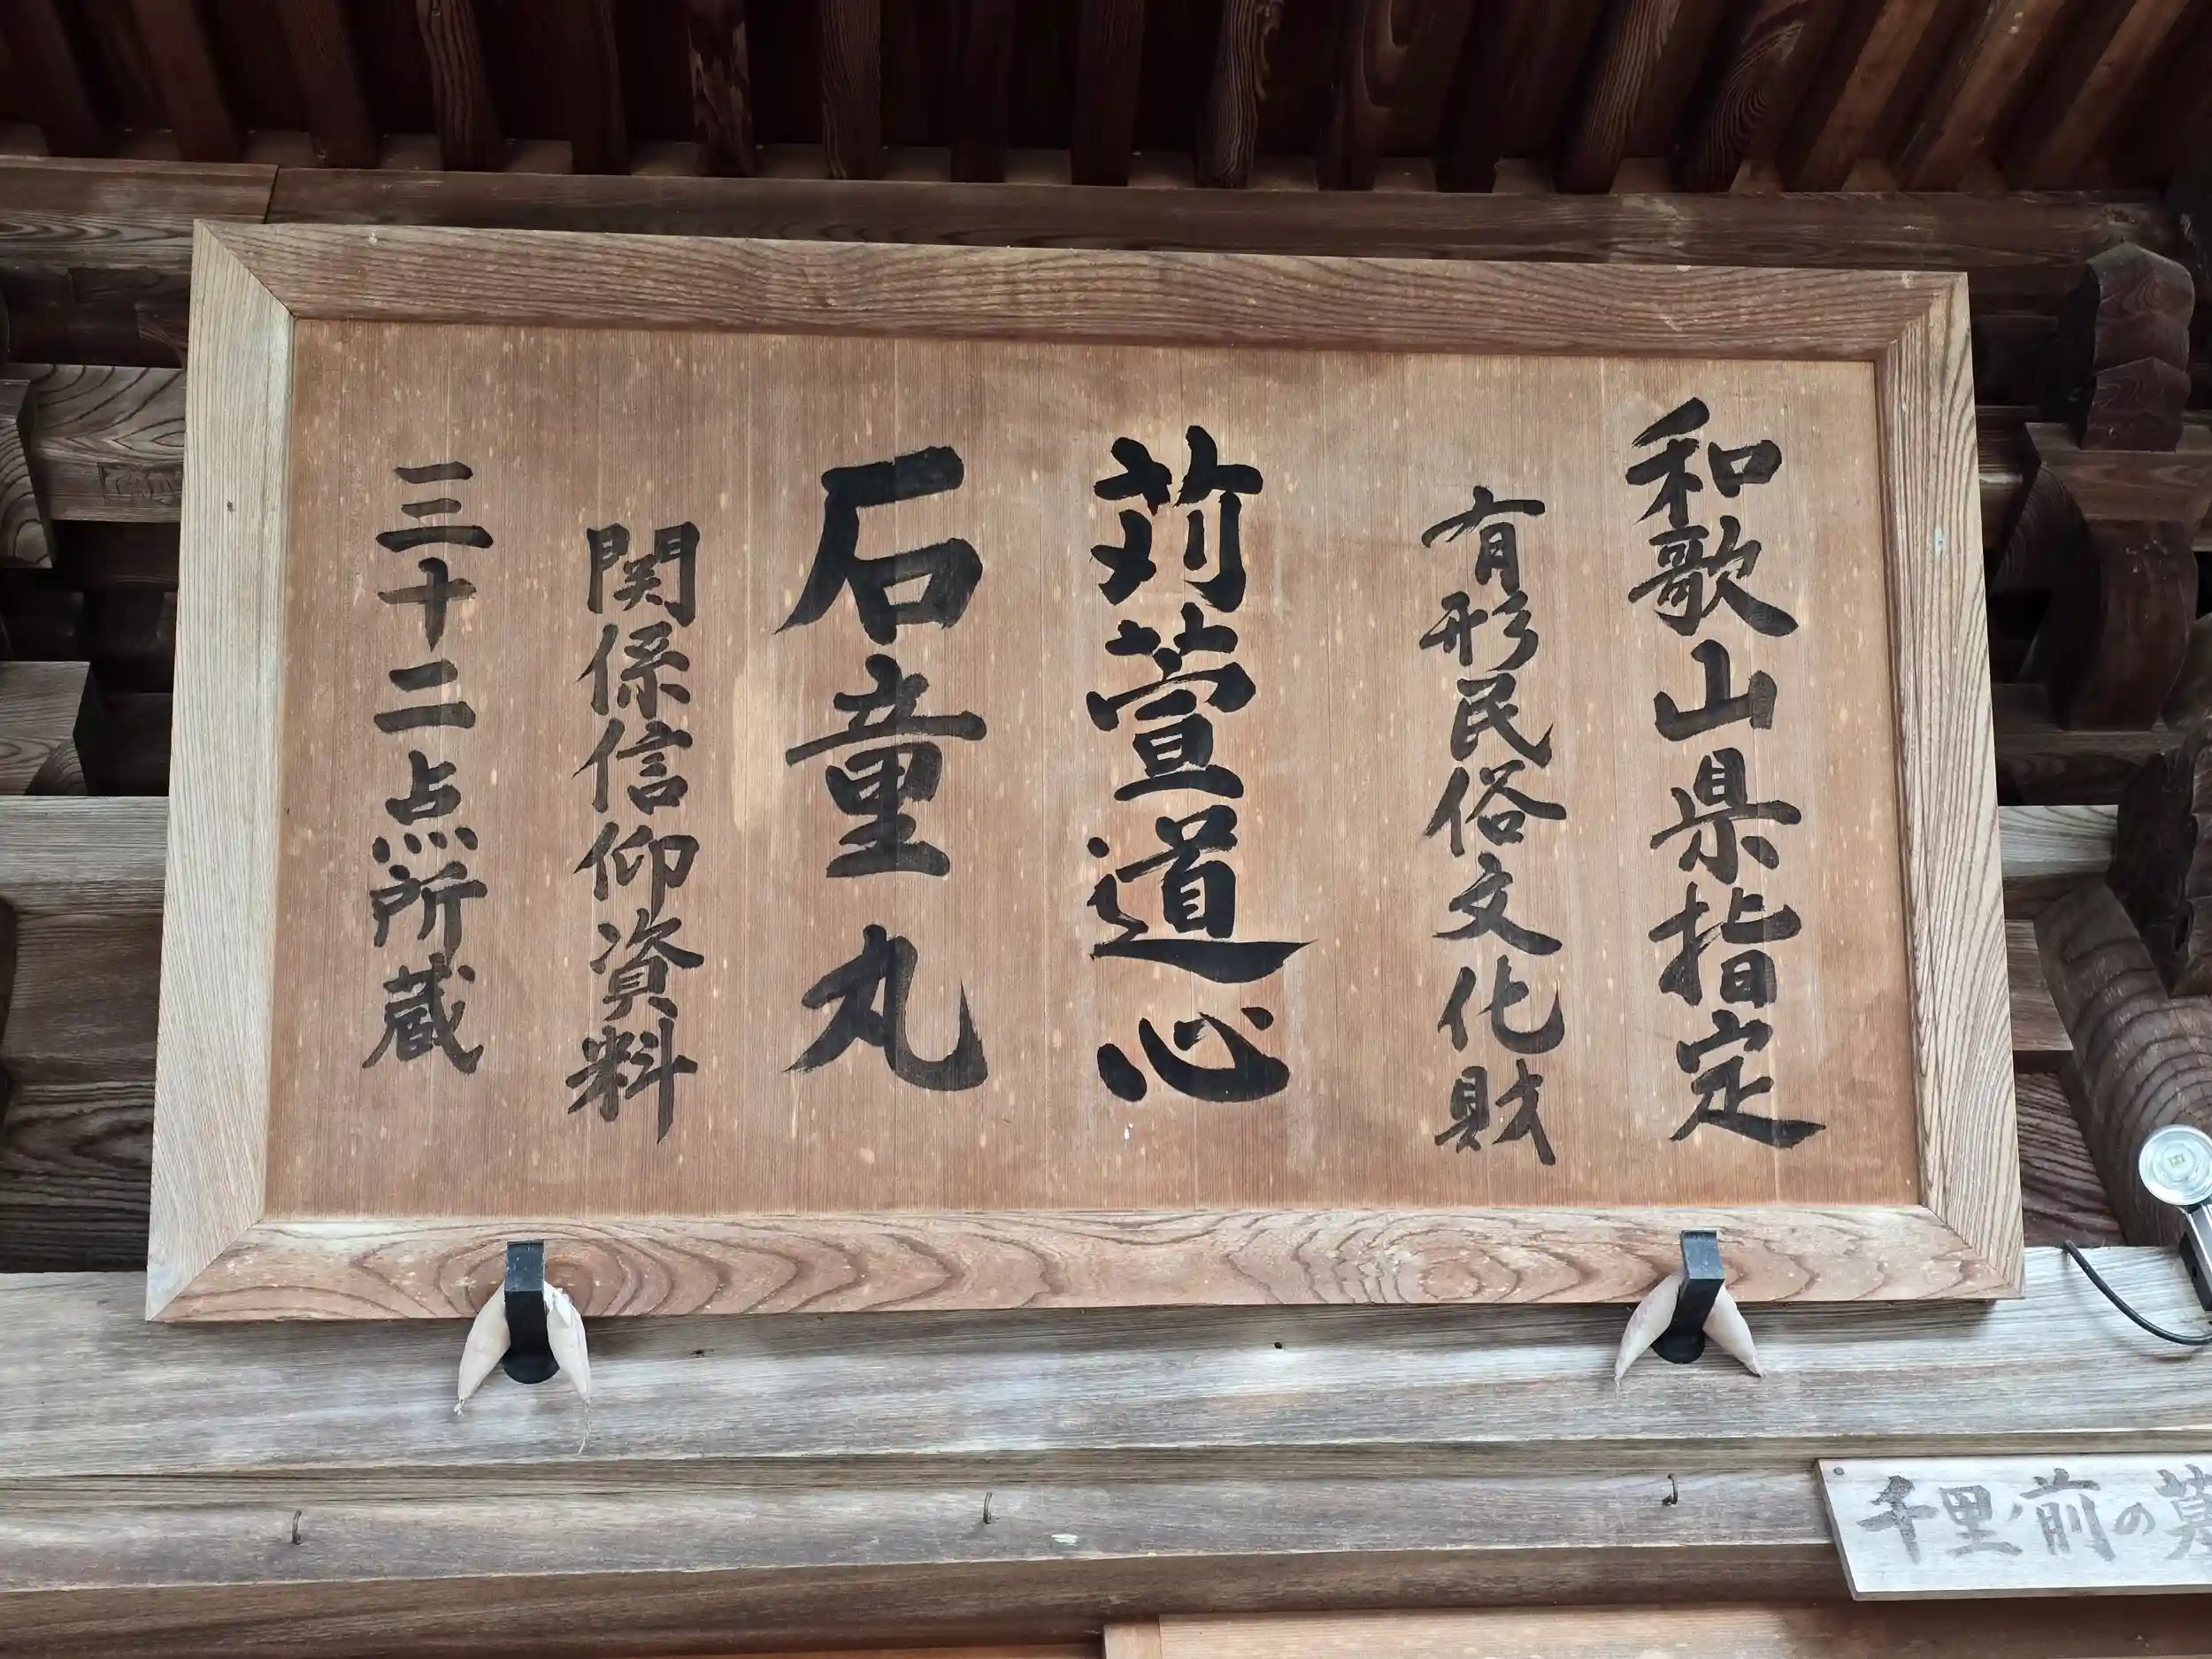 和歌山県指定
有形民俗文化財
苅萱道心
石童丸
関係信仰資料
三十二点所蔵
千里ノ前の墓